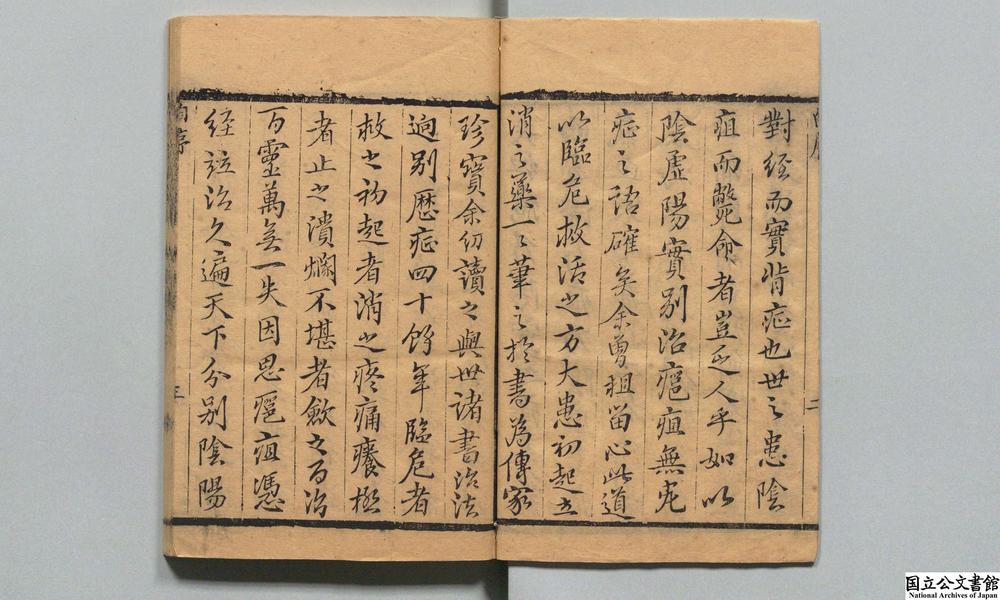 對經而實背症也世之患陰
疽而斃命者豈乏人乎如以
陰虛陽實別治癰疽無死
症之語確矣余曾祖留心此道
以臨危救活之方大患初起立
消之藥一〻筆之於書為傳家
珍寶余幼讀之與世諸書治法
逈別歷症四十餘年臨危者
救之初起者消之疼痛癢極
者止之潰爛不堪者歛之百治
百靈萬無一失因思癰疽憑
經竝治久遍天下分別陰陽
自序
二
自序
三
国立公文書館
National Archives of Japan